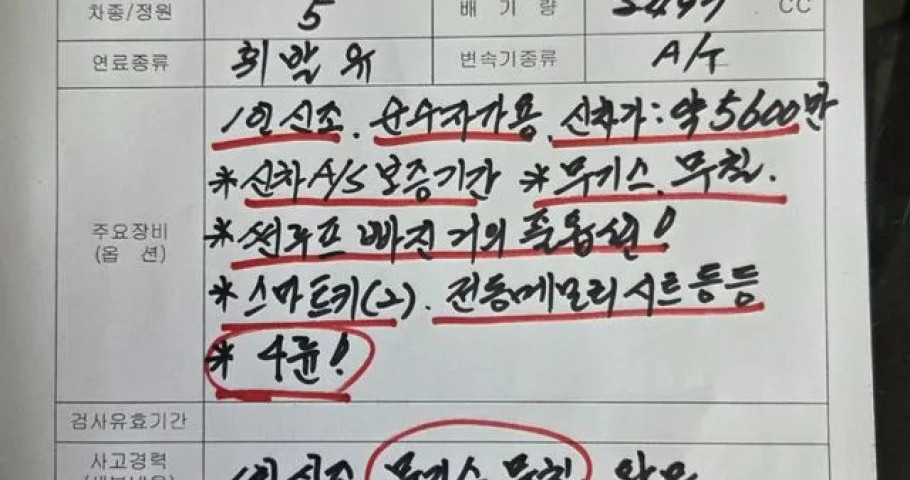 차종/정원 5 배 기 량 2497 CC
연료종류 휘발유 변속기종류 A/T
1인신조. 순수자가용. 신차가: 약 5600만
*신차A/S보증기간 *무기스. 무칠.
주요장비 *썬루프 빠진 거의 풀옵션!
(옵 션)
*스마트키(2). 전동메모리시트등등
*4륜!
검사유효기간
사고경력 1인신조 무기스 무칠